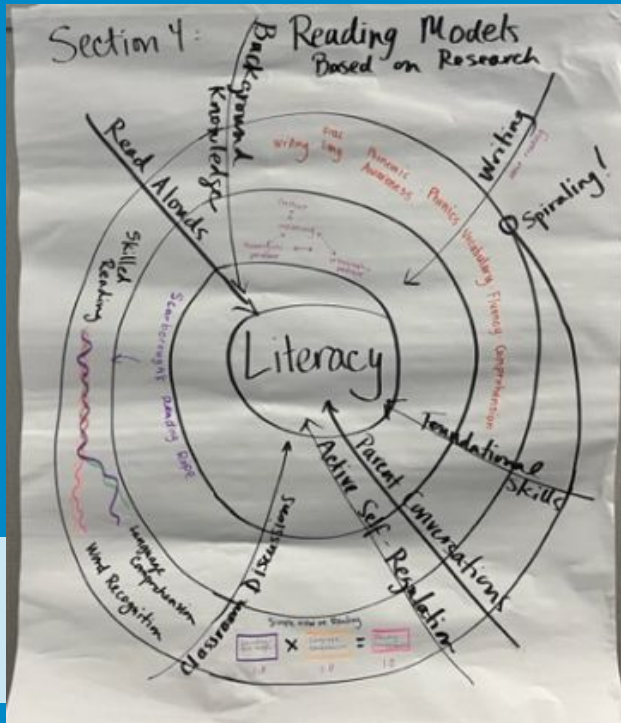 Section 4:
Reading Models
Based on Research
Background
Knowledge
Read Alouds
Writing
and reading
Spiraling!
Writing
Oral
Lang
Phonemic
Awareness
Phonics
Vocabulary
Fluency
Comprehension
Skilled
Reading
Scarborough's Reading Rope
Literacy
Foundational
Skills
Parent Conversations
Active Self-Regulation
Classroom Discussions
Language
Comprehension
Word Recognition
Simple View on Reading
X
=
1.0
1.0
1.0